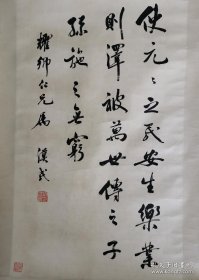 使元〻之民安生樂業
則澤被萬世傳之子
孫施之無窮
耀卿仁兄屬 漢民